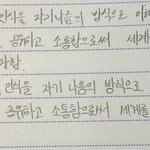 인식을 자기 나름의 방식으로 이해
공유하고 소통함으로써 세계
사람
인식을 자기 나름의 방식으로
공유하고 소통함으로써 세계를